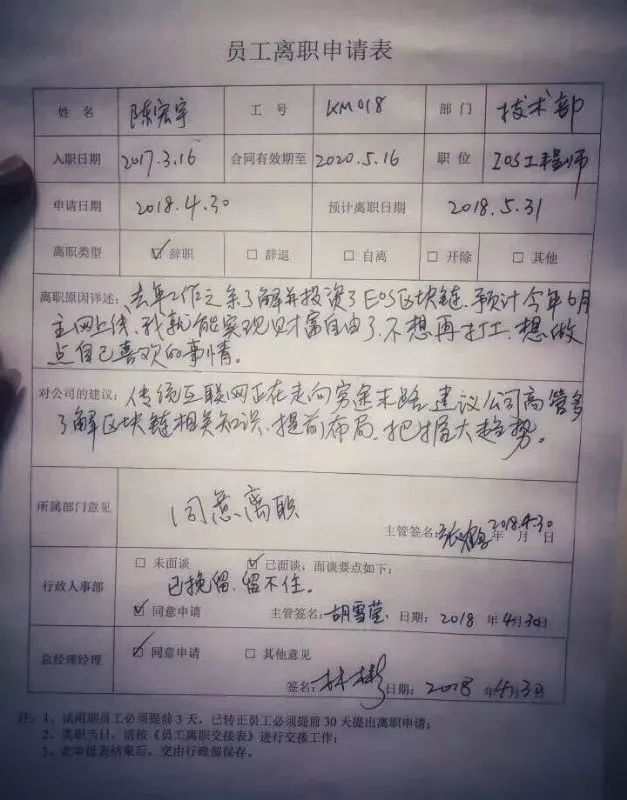 员工离职申请表
姓名 陈宏宇 工号 KM018 部门 技术部
入职日期 2017.3.16 合同有效期至 2020.5.16 职位 IOS工程师
申请日期 2018.4.30 预计离职日期 2018.5.31
离职类型 ☑ 辞职 □ 辞退 □ 自离 □ 开除 □ 其他
离职原因详述：去年工作之余了解并投资了EOS区块链、预计今年6月
主网上线、我就能实现财富自由了、不想再打工、想做
点自己喜欢的事情。
对公司的建议：传统互联网正在走向穷途末路、建议公司高管多
了解区块链相关知识、提前布局、把握大趋势。
所属部门意见 同意离职
主管签名： 2018.4.30 年 月 日
□ 未面谈 ☑ 已面谈，面谈要点如下：
行政人事部 已挽留、留不住。
☑ 同意申请 主管签名：胡雪莹 日期：2018 年4月30日
总经理经理 ☑ 同意申请 □ 其他意见
签名：林彬 日期：2018 年4月3日
注：1、试用期员工必须提前3天，已转正员工必须提前30天提出离职申请；
2、离职当日，请按《员工离职交接表》进行交接工作；
3、此审批表结束后，交由行政部保存。